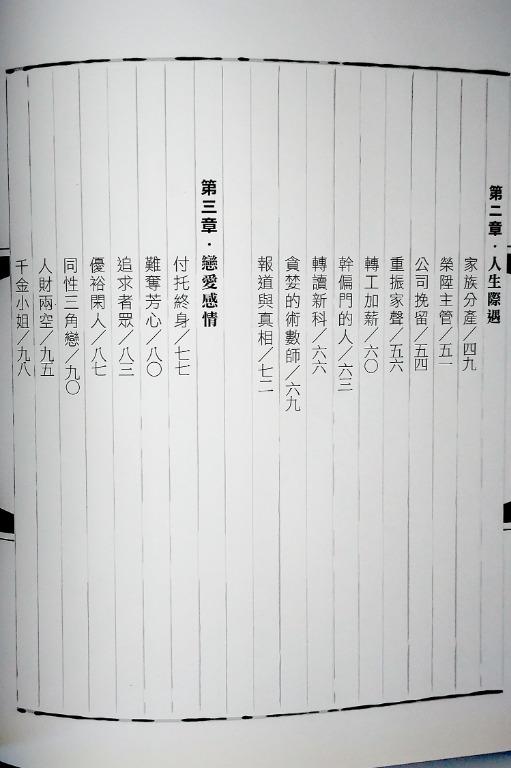 第二章·人生際遇
家族分產／四九
榮陞主管／五一
公司挽留／五四
重振家聲／五六
轉工加薪／六〇
幹偏門的人／六三
轉讀新科／六六
貪婪的術數師／六九
報道與真相／七二
第三章·戀愛感情
付托終身／七七
難奪芳心／八〇
追求者眾／八三
優裕閑人／八七
同性三角戀／九〇
人財兩空／九五
千金小姐／九八